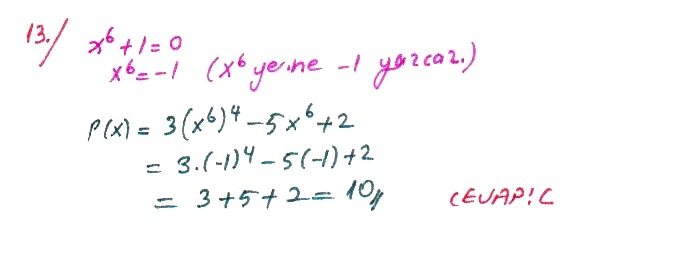 13./ x⁶+1=0
x⁶=-1 (x⁶ yerine -1 yazcaz.)
P(x) = 3(x⁶)⁴-5x⁶+2
= 3.(-1)⁴-5(-1)+2
= 3+5+2=10//
CEVAP: C